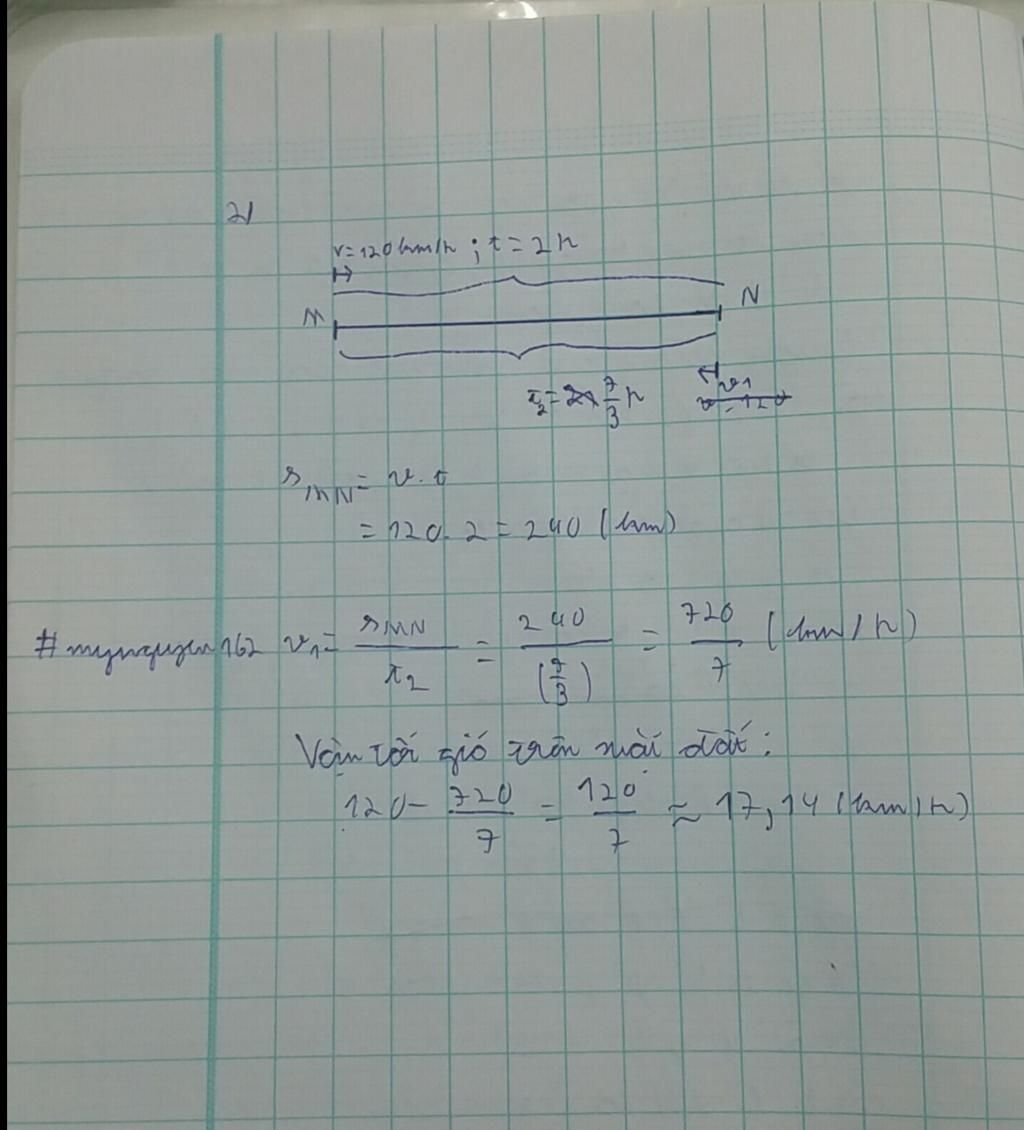 2/
v=120 km/h ; t = 2h
M N
t₂ = 7/3 h v₁
s_MN = v.t
= 120. 2 = 240 (km)
#mynguyen162 v₁ = s_MN/t₂ = 240/(7/3) = 720/7 (km/h)
Vận tốc gió trên mặt đất:
120 - 720/7 = 120/7 ≈ 17,14 (km/h)